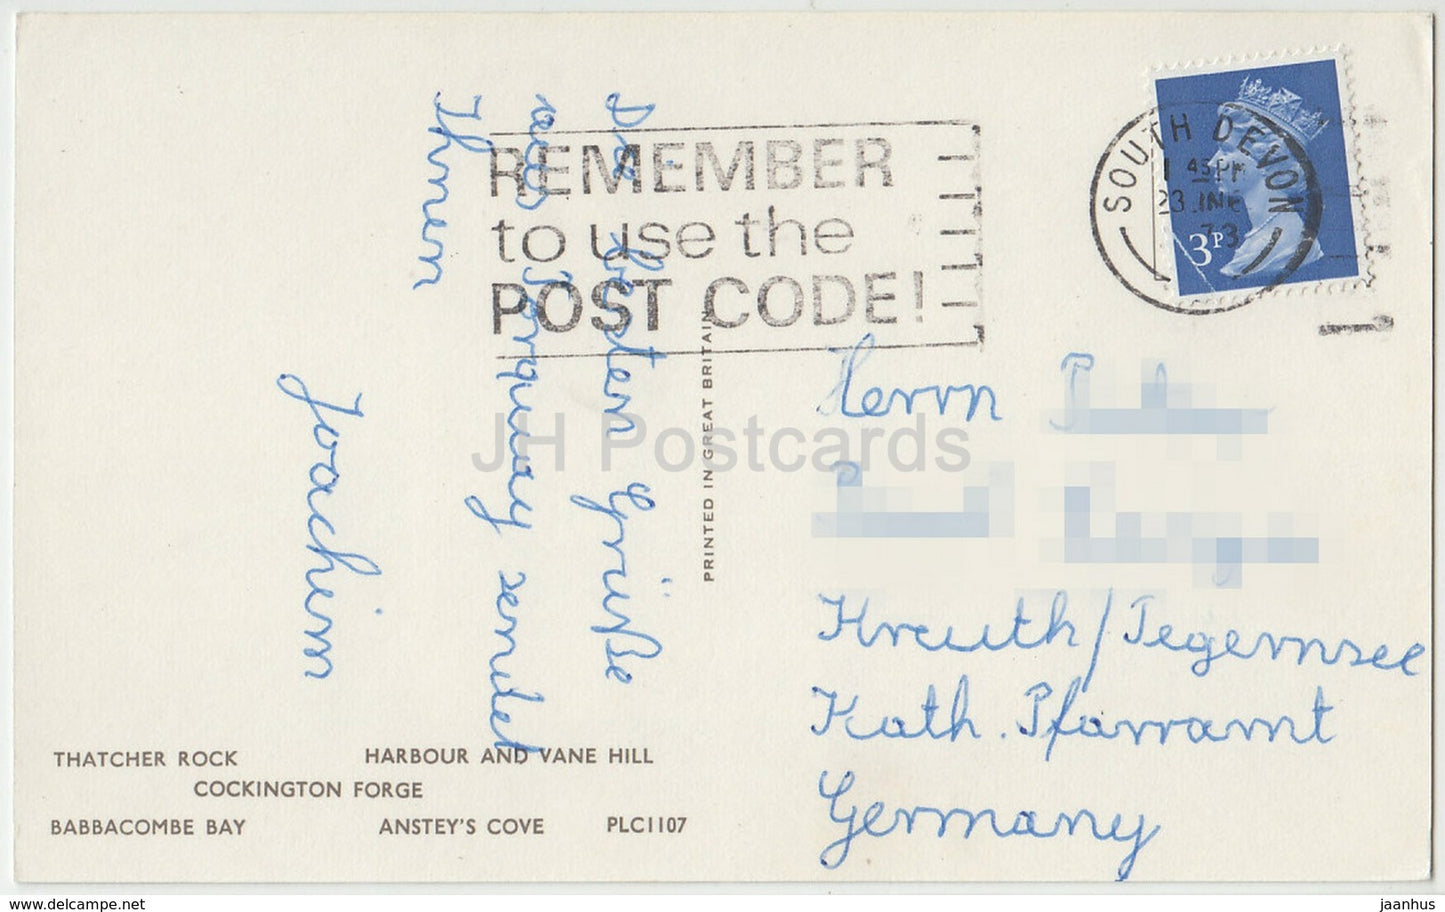 SOUTH DEVON
1 45 PM
23 JNE
73
3P
REMEMBER
to use the
POST CODE!
Die besten Grüße
aus Torquay sendet
Ihnen
Joachim
PRINTED IN GREAT BRITAIN
Herrn
Kreuth/Tegernsee
Kath. Pfarramt
Germany
THATCHER ROCK HARBOUR AND VANE HILL
COCKINGTON FORGE
BABBACOMBE BAY ANSTEY'S COVE PLC1107
JH Postcards
www.delcampe.net
jaanhus